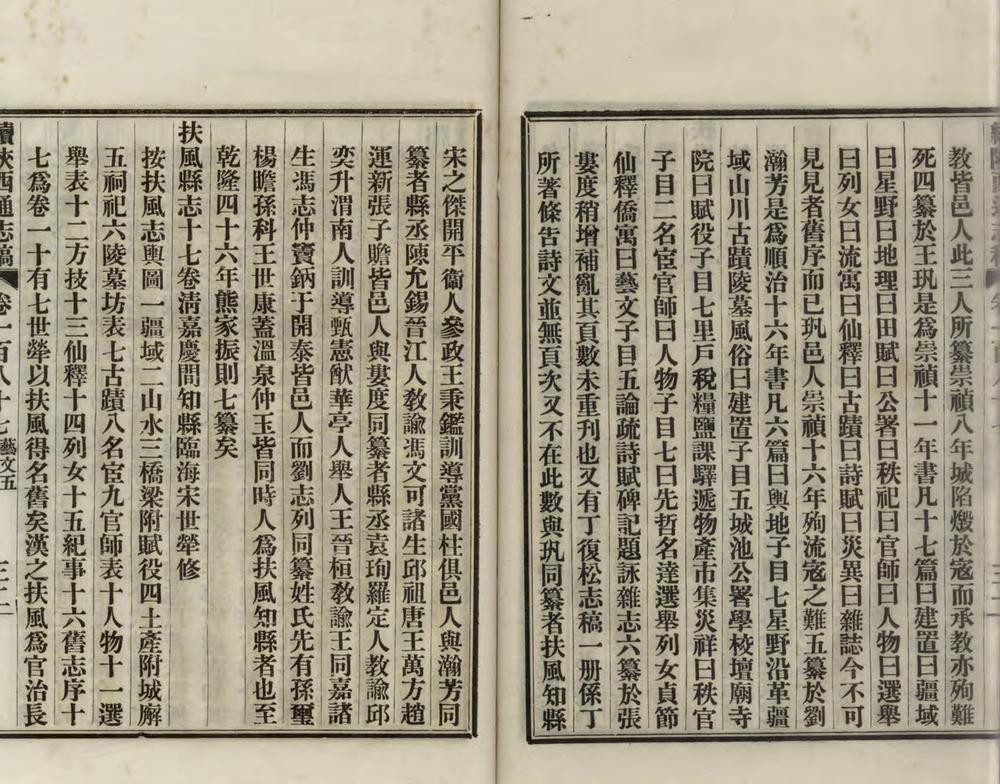 教皆邑人此三人所纂崇禎八年城陷燬於寇而承教亦殉難
死四纂於王玑是爲崇禎十一年書凡十七篇曰建置曰疆域
曰星野曰地理曰田賦曰公署曰秩祀曰官師曰人物曰選舉
曰列女曰流寓曰仙釋曰古蹟曰詩賦曰災異曰雜誌今不可
見見者舊序而已玑邑人崇禎十六年殉流寇之難五纂於劉
瀚芳是爲順治十六年書凡六篇曰輿地子目七星野沿革疆
域山川古蹟陵墓風俗曰建置子目五城池公署學校壇廟寺
院曰賦役子目七里戶稅糧鹽課驛遞物產市集災祥曰秩官
子目二名宦官師曰人物子目七曰先哲名達選舉列女貞節
仙釋僑寓曰藝文子目五論疏詩賦碑記題詠雜志六纂於張
婁度稍增補亂其頁數未重刊也又有丁復松志稿一册係丁
所著條告詩文並無頁次又不在此數與玑同纂者扶風知縣
宋之傑開平衞人參政王秉鑑訓導黨國柱俱邑人與瀚芳同
纂者縣丞陳允錫晉江人敎諭馮文可諸生邱祖唐王萬方趙
運新張子瞻皆邑人與婁度同纂者縣丞袁珣羅定人教諭邱
奕升渭南人訓導甄憲猷華亭人舉人王晉桓敎諭王同嘉諸
生馮志仲竇鈉于開泰皆邑人而劉志列同纂姓氏先有孫璽
楊瞻孫科王世康蓋溫泉仲玉皆同時人爲扶風知縣者也至
乾隆四十六年熊家振則七纂矣
扶風縣志十七卷淸嘉慶間知縣臨海宋世犖修
按扶風志輿圖一疆域二山水三橋梁附賦役四土產附城廨
五祠祀六陵墓坊表七古蹟八名宦九官師表十人物十一選
舉表十二方技十三仙釋十四列女十五紀事十六舊志序十
七爲卷一十有七世犖以扶風得名舊矣漢之扶風爲官治長
續陝西通志稿 卷一百八十七 藝文五